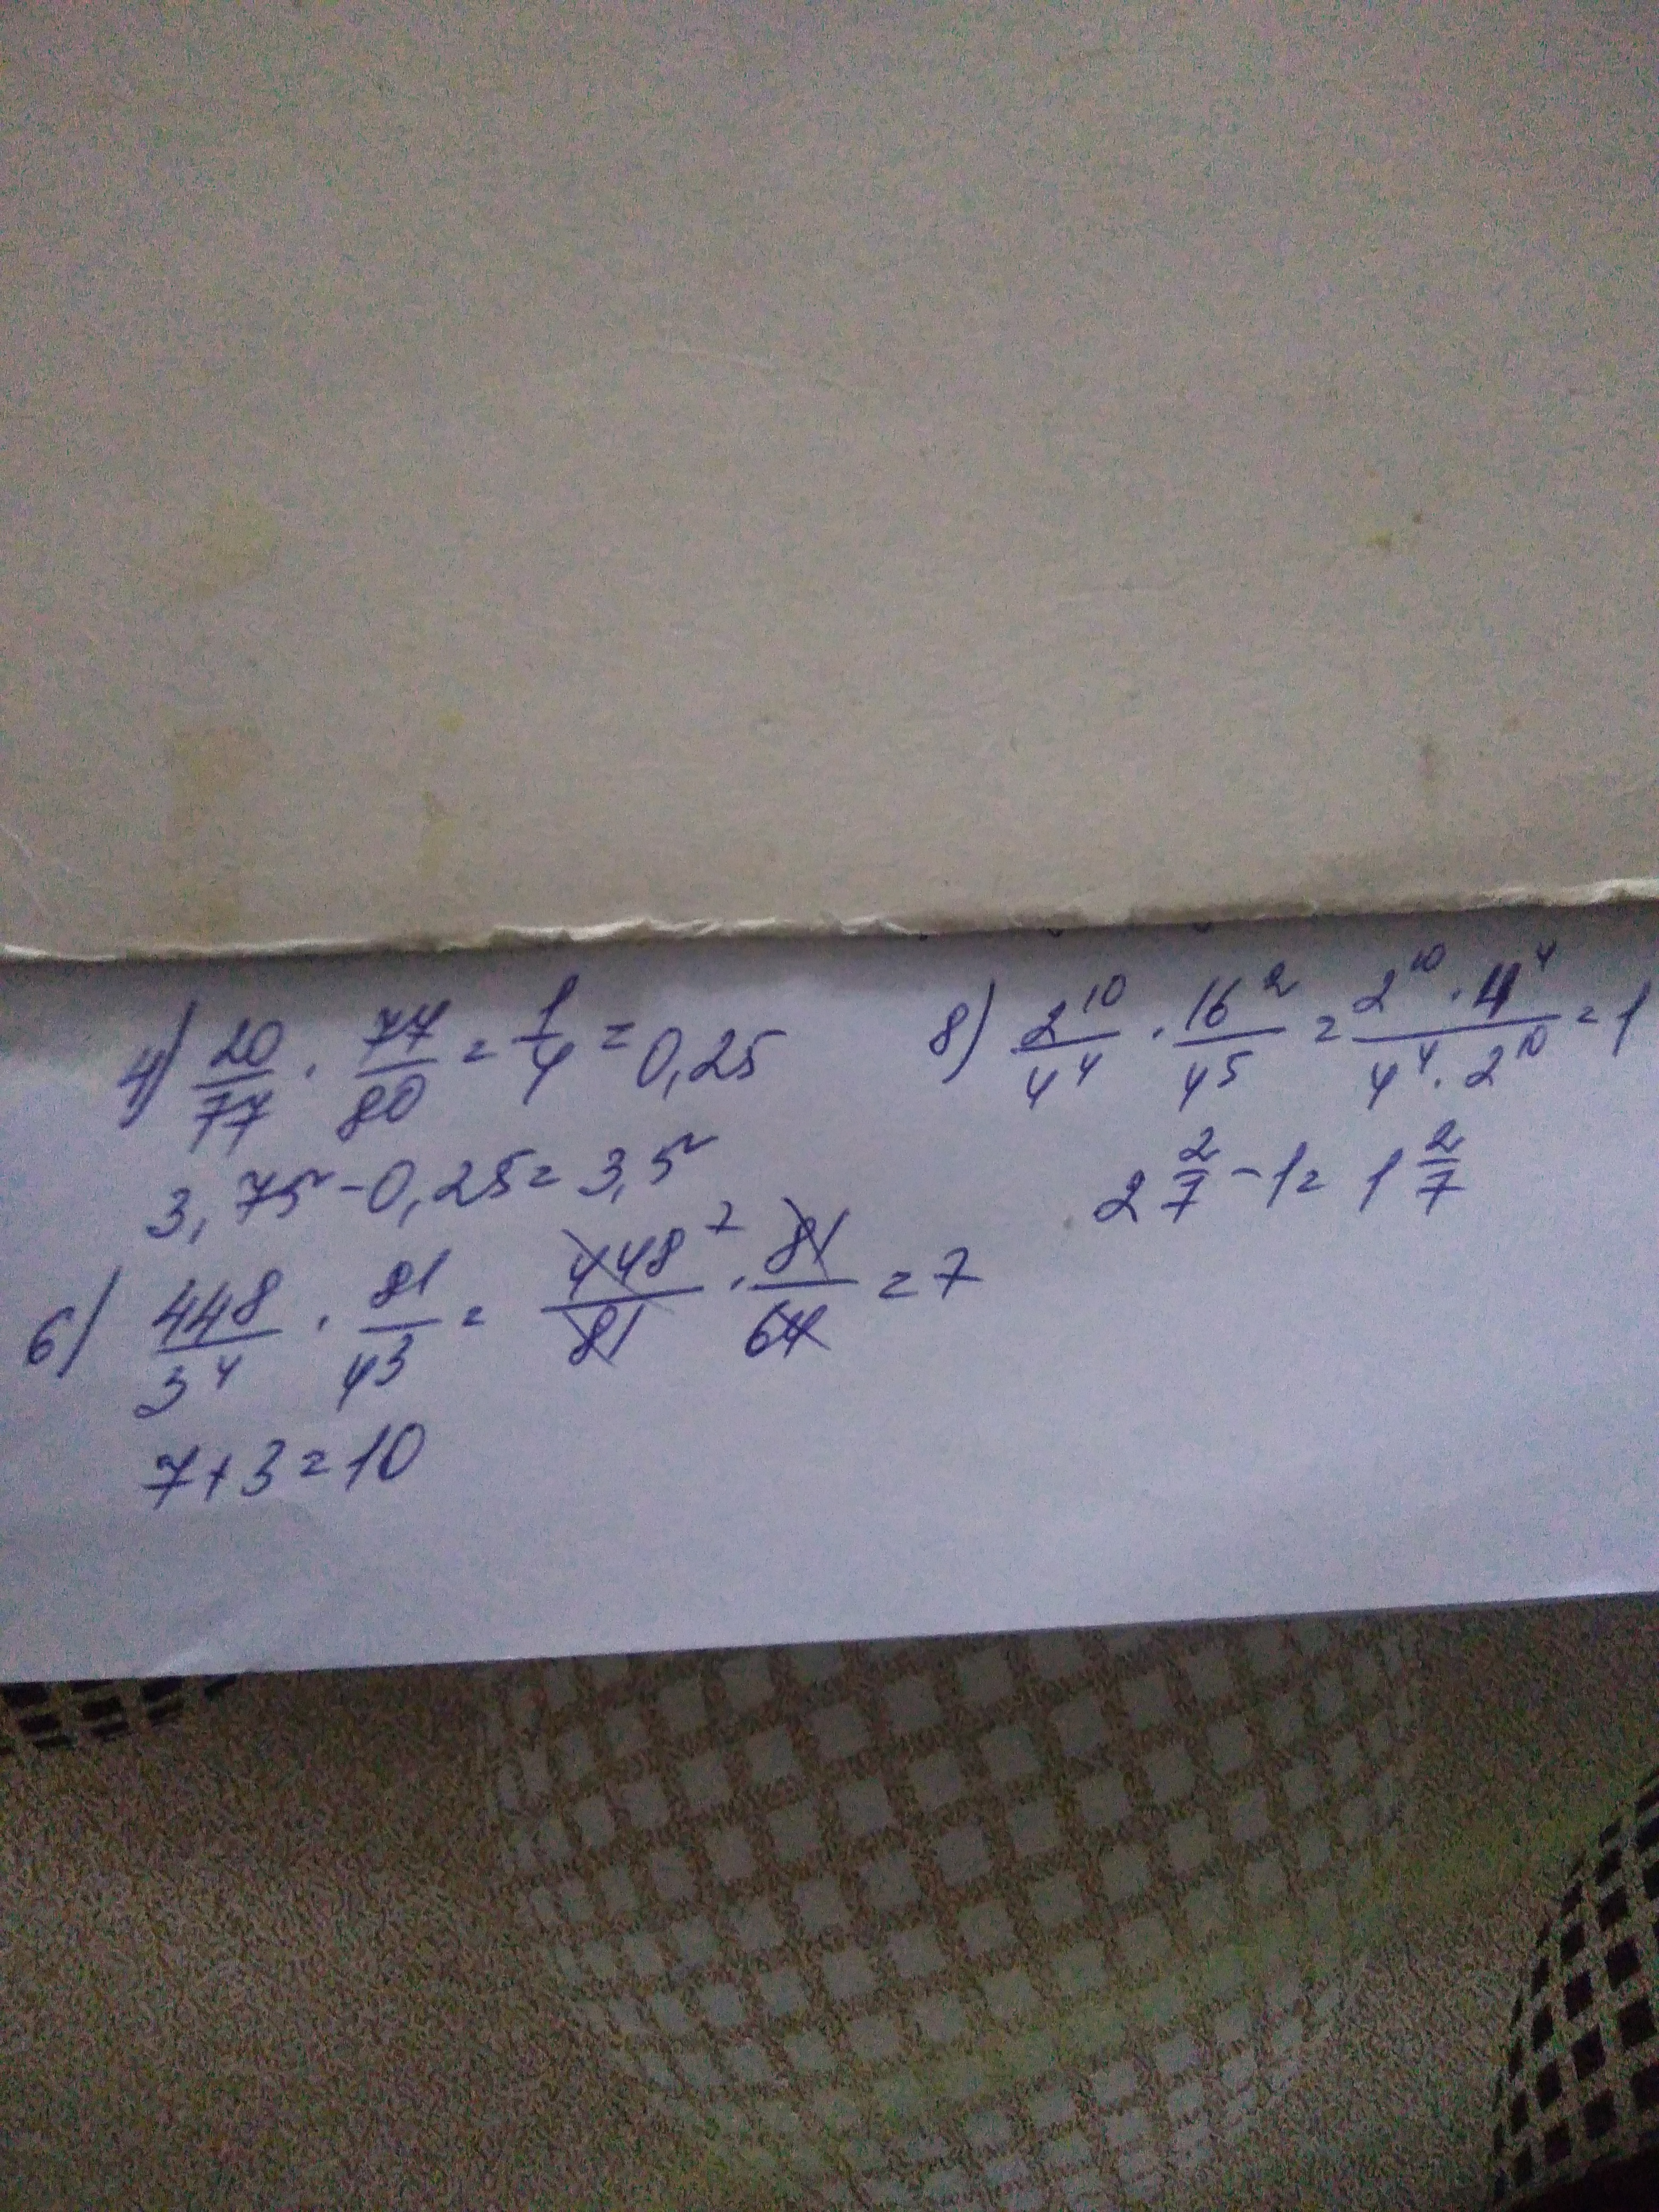 4) 20/77 · 77/80 = 1/4 = 0,25
3,75 - 0,25 = 3,5
6) 448/3⁴ · 81/4³ = 448/81 ⁷ · 81/64 = 7
7 + 3 = 10
8) 2¹⁰/4⁴ · 16²/4⁵ = 2¹⁰ · 4⁴/4⁴ · 2¹⁰ = 1
2 2/7 - 1 = 1 2/7